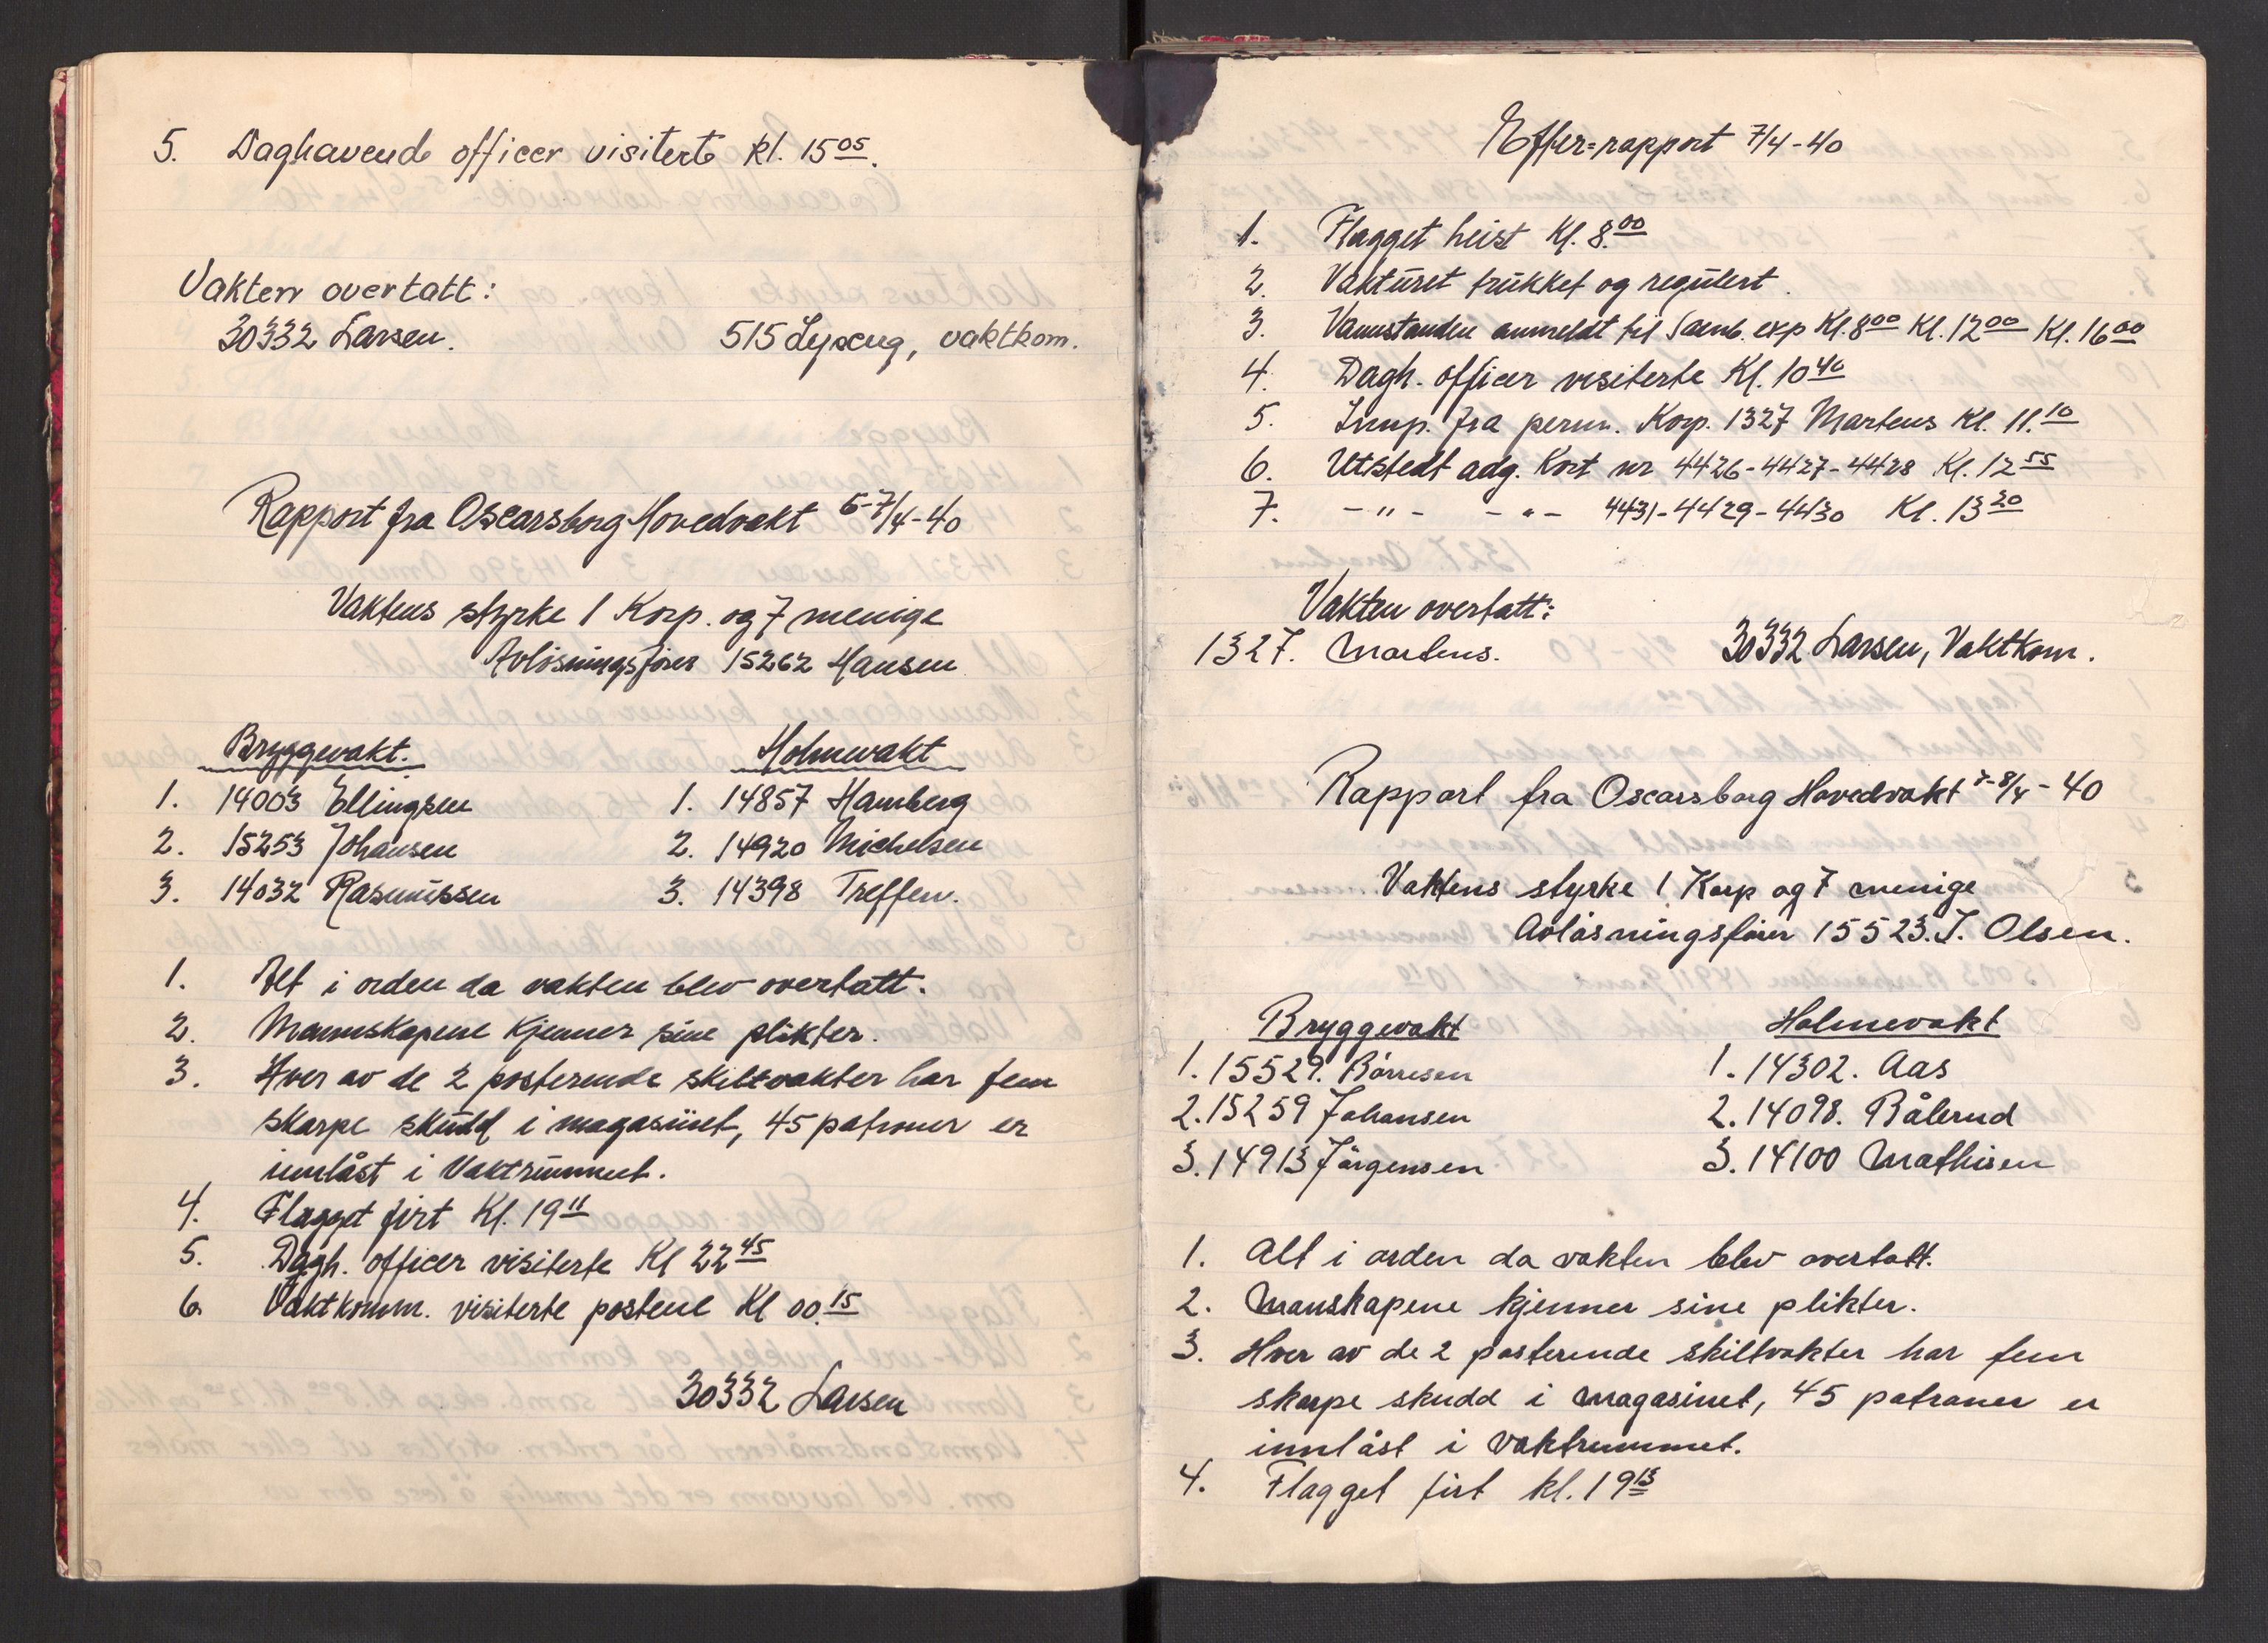 5. Daghavende officer visiterte kl. 15 05.
Vakten overtatt:
30332 Larsen. 515 Lyseng, vaktkom.
Rapport fra Oscarsborg Hovedvakt 6-7/4-40
Vaktens styrke 1 Korp. og 7 menige
Avløsningsfører 15262 Hansen
Bryggevakt. Holmevakt
1. 14003 Ellingsen 1. 14857 Hamberg
2. 15253 Johansen 2. 14920 Michelsen
3. 14032 Rasmussen 3. 14398 Treffen.
1. Alt i orden da vakten blev overtatt.
2. Mannskapene kjenner sine plikter.
3. Hver av de 2 posterende skiltvakter har fem
skarpe skudd i magasinet, 45 patroner er
innlåst i Vaktrummet.
4. Flagget firt Kl. 19 11
5. Dagh. officer visiterte Kl 22 45
6. Vaktkomm. visiterte postene Kl 00.15
30332 Larsen
Efter=rapport 7/4-40
1. Flagget heist Kl. 8.00
2. Vakturet trukket og regulert.
3. Vannstanden anmeldt til Samb. exp Kl. 8 00 Kl. 12 00 Kl. 16 00
4. Dagh. officer visiterte Kl. 10 40
5. Innp. fra perm. Korp. 1327 Martens Kl. 11.10
6. Utstedt adg. Kort nr 4426-4427-4428 Kl. 12 55
7. -"- -"- 4431-4429-4430 Kl. 13 20
Vakten overtatt:
1327. Martens. 30332 Larsen, Vaktkom.
Rapport fra Oscarsborg Hovedvakt 7-8/4-40
Vaktens styrke 1 Korp og 7 menige
Avløsningsfører 15523. J. Olsen.
Bryggevakt Holmevakt
1. 15529. Børresen 1. 14302. Aas
2. 15259 Johansen 2. 14098. Bålerud
3. 14913 Jørgensen 3. 14100 Mathisen
1. Alt i orden da vakten blev overtatt.
2. Manskapene kjenner sine plikter.
3. Hver av de 2 posterende skiltvakter har fem
skarpe skudd i magasinet, 45 patroner er
innlåst i vaktrummet.
4. Flagget firt kl. 19 13